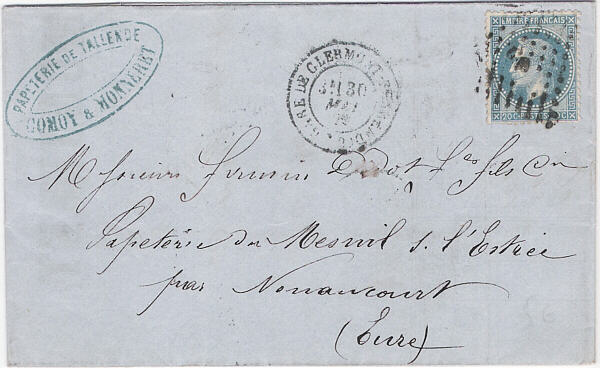 PAPETERIE DE TALLENDE
GOROY & MONNERET
GARE DE CLERMONT-FERRAND
30
EMPIRE FRANÇAIS
20C POSTES 20C
Messieurs Firmin Didot Fes fils Cie
Papeterie du Mesnil s. l'Estrée
par Nonancourt
(Eure)
56